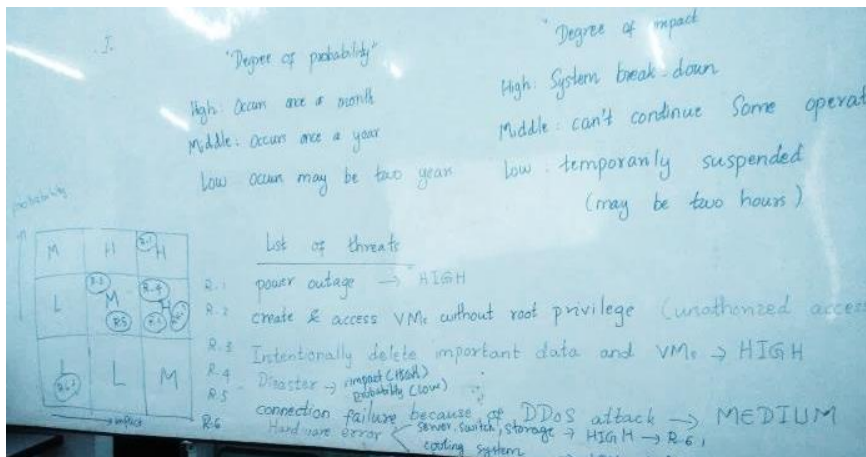 "Degree of probability"
High: Occurs once a month
Middle: Occurs once a year
Low occurs may be two years
"Degree of impact
High: System break-down
Middle: can't continue Some operat
Low: temporarily suspended
(may be two hours)
probability
M H R.1 H
L R.2 M R.5 R.4 H
L L M
impact
List of threats
R.1 power outage → HIGH
R.2 create & access VMs without root privilege (unathorized access
R.3 Intentionally delete important data and VMs → HIGH
R.4 Disaster → impact (HIGH)
probability (LOW)
R.5 connection failure because of DDoS attack → MEDIUM
R.6 Hardware error server, switch, storage → HIGH → R.6.1
cooling system